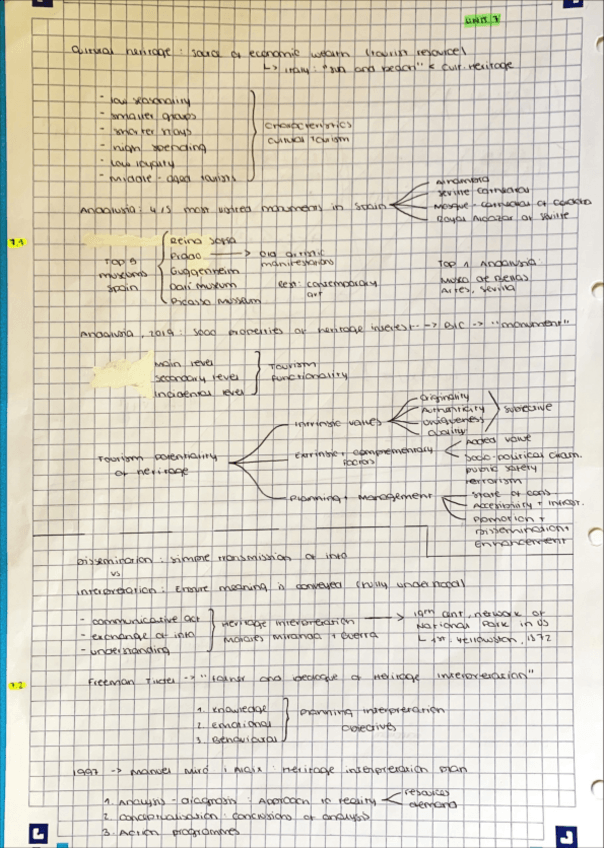 UNIT 7
Cultural heritage : source of economic wealth (tourist resource)
↳ Italy : "sun and beach" < cult. heritage
- low seasonality
- smaller groups
- shorter stays
- high spending
- low loyalty
- middle-aged tourists
characteristics
cultural tourism
Andalusia : 4/5 most visited monuments in Spain
Alhambra
Seville cathedral
Mosque-cathedral of Cordoba
Royal Alcazar of Seville
7.1
Top 5
museums
Spain
Reina Sofia
Prado → old artistic
manifestations
Guggenheim
Dalí museum
Picasso museum
Rest : contemporary
art
Top 1 Andalusia :
Museo de Bellas
Artes, Sevilla
Andalusia, 2019 : 3000 properties of heritage interest --> BIC -> "monument"
main level
secondary level
incidental level
Tourism
functionality
Tourism potentiality
of heritage
Intrinsic values
originality
Authenticity
uniqueness
quality
subjective
Extrinsic + complementary
factors
Added value
Socio-political cham.
public safety
terrorism
Planning + Management
State of cons.
Accessibility +
Promotion +
Dissemination +
Enhancement
Dissemination : simple transmission of info
vs
Interpretation : Ensure meaning is conveyed (fully understood)
- communicative act
- exchange of info
- understanding
Heritage interpretation
Morales Miranda + Guerra
→ 19th cent, network of
National Park in US
↳ 1st : Yellowston, 1872
7.2
Freeman Tilden -> "father and ideologue of heritage interpretation"
1. Knowledge
2. emotional
3. Behavioural
Planning interpretation
objectives
1997 -> Manuel Miró i Alaix : Heritage interpretation plan
1. Analysis-diagnosis : Approach to reality
resources
demand
2. conceptualisation : conclusions of analysis
3. Action programmes